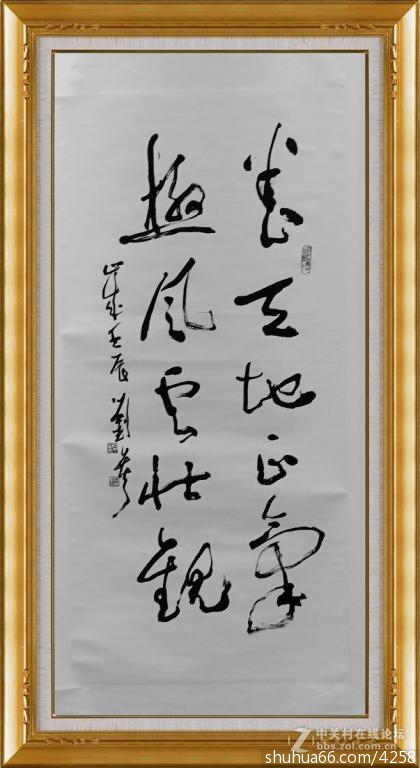 养天地正氣
極風雲壮觀
歲壬辰劉
中关村在线论坛
bbs.zol.com.cn
shuhua66.com/4258